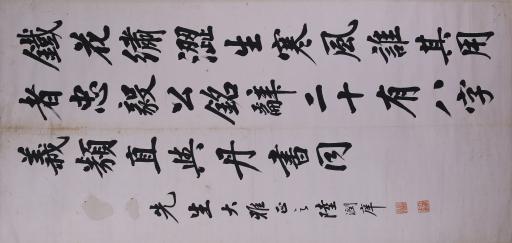 鐵花繡澀生寒風誰其用
者忠毅公銘辭二十有八字
義類直與丹書同
先生大雅正之陸潤庠